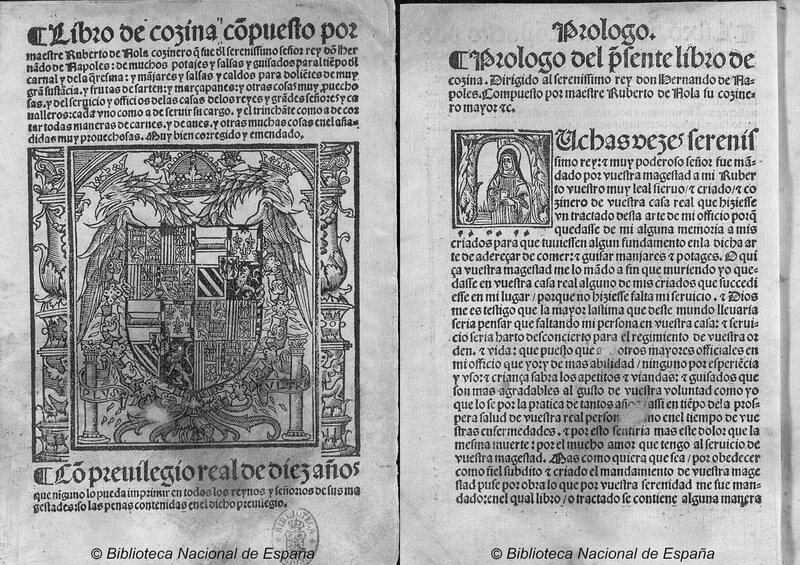 Libro de cozina cõpuesto por
maestre Ruberto de Nola cozinero q̃ fue ðl serenissimo señor rey dõ Her
nãdo de Napoles: de muchos potajes y salsas y guisados para el tiẽpo ðl
carnal y de la q̃resma: y mãjares y salsas y caldos para doliẽtes de muy
grã sustãcia. y frutas de sarten: y març̧apanes: y otras cosas muy ꝓuecho
sas. y del seruicio y officios de las casas de los reyes y grãdes señores y ca
ualleros: cada vno como a de seruir su cargo. y el trinchãte como a de cor
tar todas maneras de carnes. y de aues. y otras muchas cosas en el aña
didas muy prouechosas. Muy bien corregido y emendado.
PLVS VLTR
Cõ preuilegio real de diez años
que ninguno lo pueda imprimir en todos los reynos y señorios de sus ma
gestades: so las penas contenidas en el dicho preuilegio.
© Biblioteca Nacional de España
Prologo.
Prologo del p̃sente libro de
cozina. Dirigido al serenissimo rey don Hernando de Na
poles. Compuesto por maestre Ruberto de Nola su cozine
ro mayor ⁊c.
MUchas vezes serenis
simo rey: ⁊ muy poderoso señor fue mã
dado por vuestra magestad a mi Ruber
to vuestro muy leal sieruo/⁊ criado/⁊ co
zinero de vuestra casa real que hiziesse
vn tractado desta arte de mi officio porq̃
quedasse de mi alguna memoria a mis
criados para que tuuiessen algun fundamento en la dicha ar
te de adereçar de comer: ⁊ guisar manjares ⁊ potages. O qui
ça vuestra magestad me lo mãdo a fin que muriendo yo que
dasse en vuestra casa real alguno de mis criados que succedi
esse en mi lugar/porque no hiziesse falta mi seruicio. ⁊ Dios
me es testigo que la mayor lastima que deste mundo lleuaria
seria pensar que faltando mi persona en vuestra casa: ⁊ serui
cio seria harto desconcierto para el regimiento de vuestra or
den. ⁊ vida: que puesto que otros mayores officiales en
mi officio que yo: y de mas abilidad/ninguno por esperiẽcia
y vso: ⁊ criança sabra los apetitos ⁊ viandas: ⁊ guisados que
son mas agradables al gusto de vuestra voluntad como yo
que lo se por la pratica de tantos años/assi en tiẽpo de la pros
pera salud de vuestra real person no en el tiempo de vue
stras enfermedades. ⁊ por esto sentiria mas este dolor que la
mesma muerte: por el mucho amor que tengo al seruicio de
vuestra magestad. Mas como quiera que sea/por obedecer
como fiel subdito ⁊ criado el mandamiento de vuestra mage
stad puse por obra lo que por vuestra serenidad me fue man
dado: en el qual libro/o tractado se contiene alguna manera
© Biblioteca Nacional de España